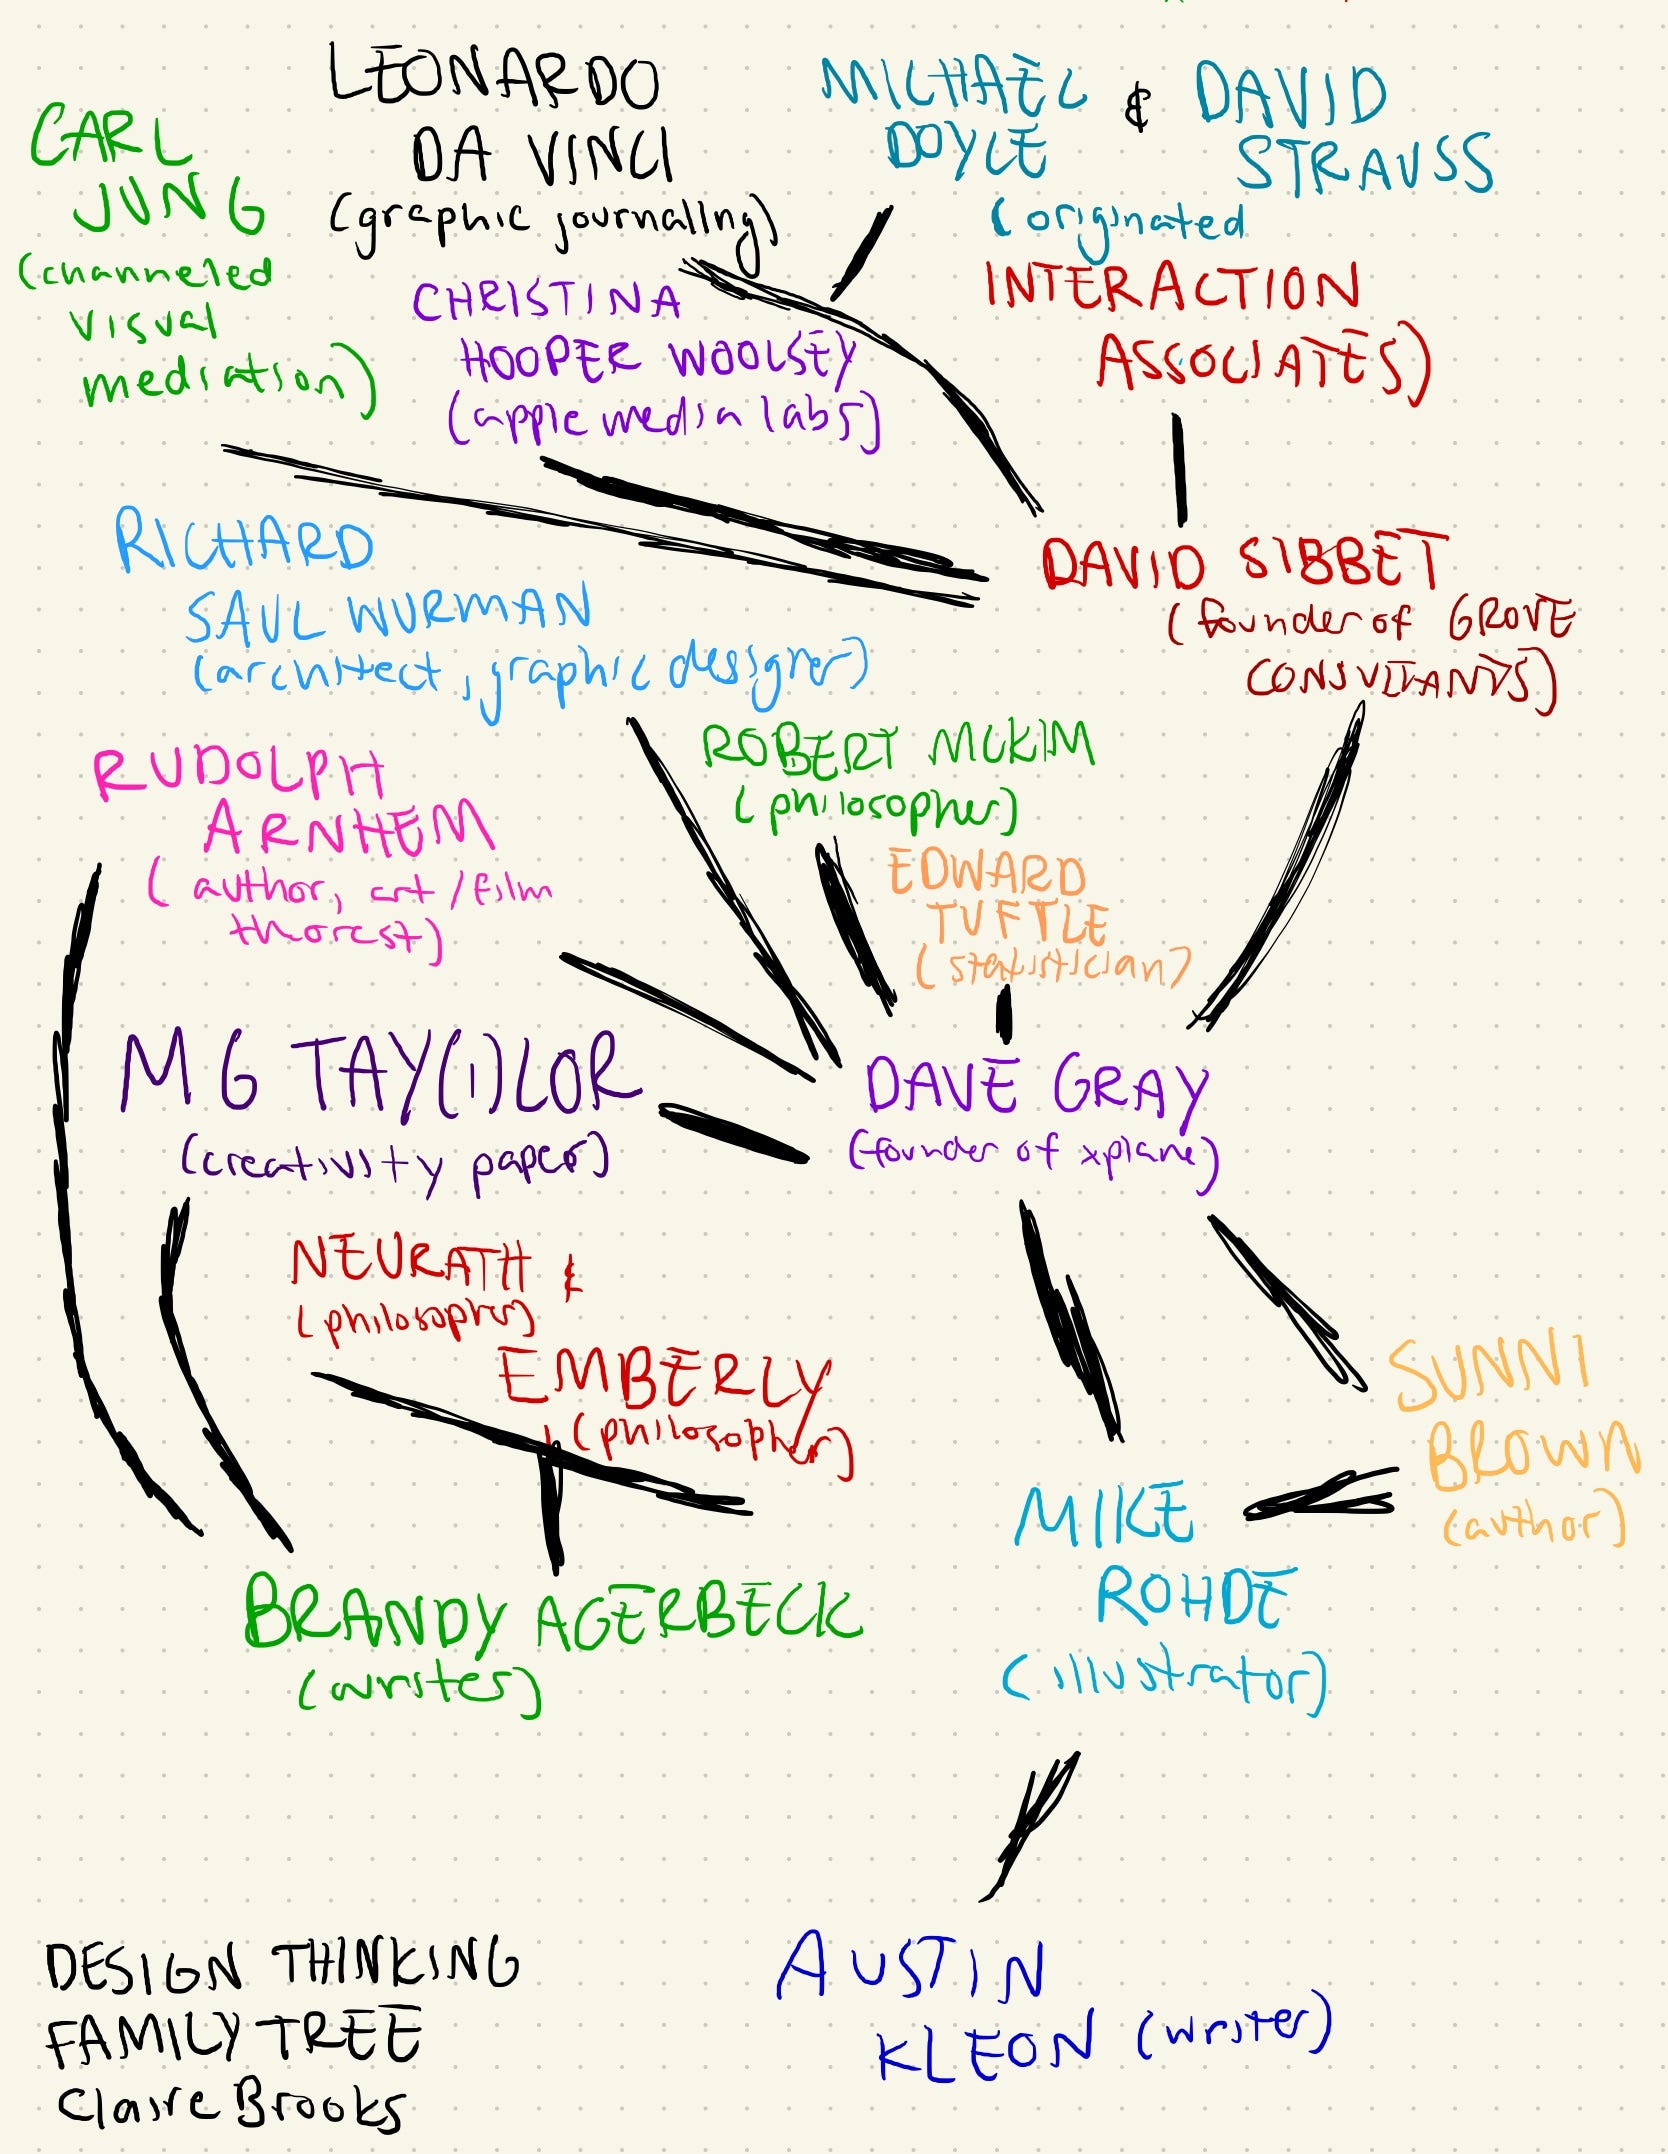 CARL
JUNG
(channeled
visual
mediation)
LEONARDO
DA VINCI
(graphic journaling)
MICHAEL
DOYLE
&
DAVID
STRAUSS
(originated
INTERACTION
ASSOCIATES)
CHRISTINA
HOOPER WOOLSEY
(apple media labs)
DAVID SIBBET
(founder of GROVE
CONSULTANTS)
RICHARD
SAUL WURMAN
(architect, graphic designer)
ROBERT MCKIM
(philosopher)
RUDOLPH
ARNHEM
(author, art/film
thorest)
EDWARD
TUFTLE
(statistician)
MG TAY(I)LOR
(creativity paper)
DAVE GRAY
(founder of xplane)
NEURATH &
(philosopher)
EMBERLY
(philosopher)
SUNNI
BROWN
(author)
MIKE
ROHDE
(illustrator)
BRANDY AGERBECK
(writes)
AUSTIN
KLEON (writer)
DESIGN THINKING
FAMILY TREE
Claire Brooks